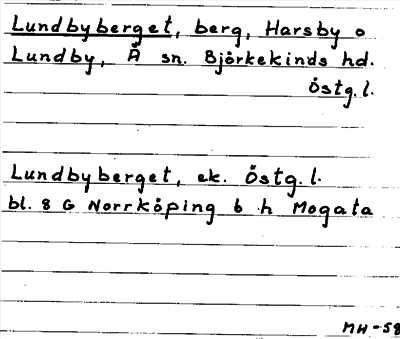 Lundbyberget, berg, Harsby o
Lundby, Å sn. Björkekinds hd.
Östg.l.
Lundbyberget, ek. Östg.l.
bl. 8 G Norrköping 6 h Mogata
MH-58